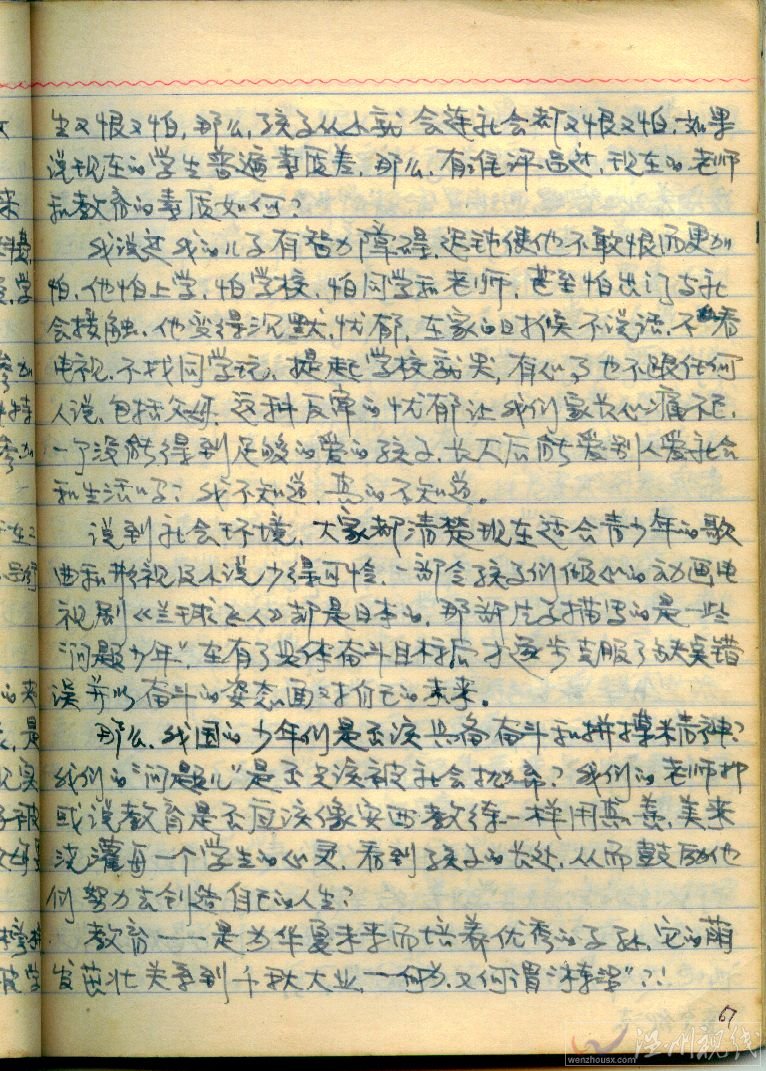 生又恨又怕,那么,孩子从小就会连社会都又恨又怕。如果
说现在的学生普遍素质差,那么,有谁评品过,现在的老师
和教育的素质如何?
我说过我的儿子有智力障碍,迟钝使他不敢恨而更加
怕,他怕上学,怕学校,怕同学和老师,甚至怕出门与社
会接触。他变得沉默,忧郁,在家的时候不说话,不看
电视,不找同学玩,提起学校就哭,有心事也不跟任何
人说,包括父母。这种反常的忧郁让我们家长心痛不已,
一个没能得到足够的爱的孩子,长大后能爱别人爱社会
和生活吗?我不知道,真的不知道。
说到社会环境,大家都清楚现在适合青少年的歌
曲和影视及小说少得可怜,一部令孩子们倾心的动画电
视剧《兰球飞人》却是日本的,那部片子描写的是一些
“问题少年”,在有了具体奋斗目标后才逐步克服了缺点错
误并以奋斗的姿态面对自己的未来。
那么,我国的少年们是否该具备奋斗和拼搏精神?
我们的“问题儿”是否应该被社会抛弃?我们的老师抑
或说教育是否应该像安西教练一样用真、善、美来
浇灌每一个学生的心灵,看到孩子的长处,从而鼓励他
们努力去创造自己的人生?
教育——是为华夏未来而培养优秀的子孙,它的萌
发茁壮关系到千秋大业,一何为,又何谓 ”?!
67
温州视线
wenzhousx.com